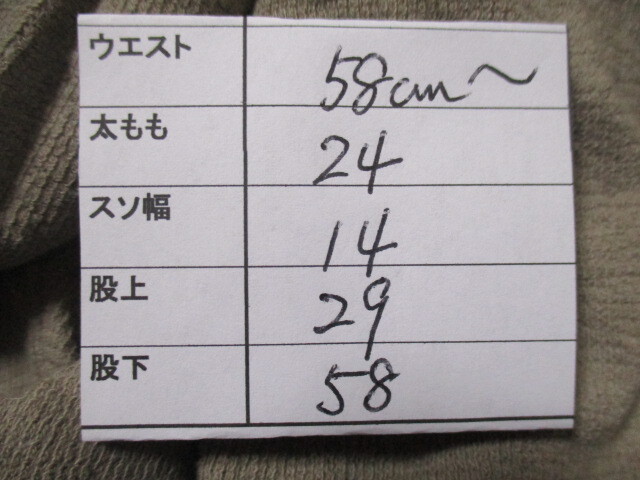 ウエスト 58cm〜
太もも 24
スソ幅 14
股上 29
股下 58